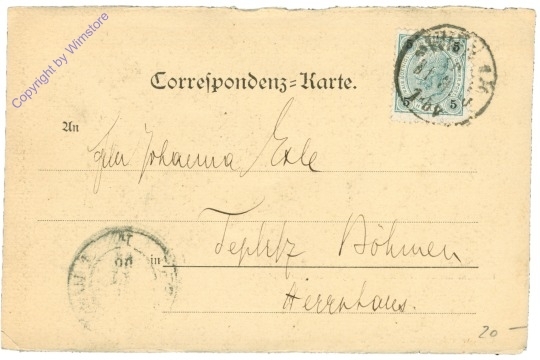 Copyright by Wimstore
Correspondenz=Karte.
An
Johanna
in Teplitz Böhmen
Herrnhaus.
5 5
5 5
20 —